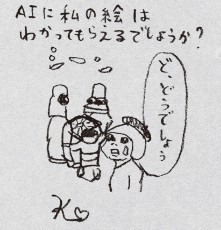 AIに私の絵は
わかってもらえるでしょうか?
ど、どうでしょう
K♡